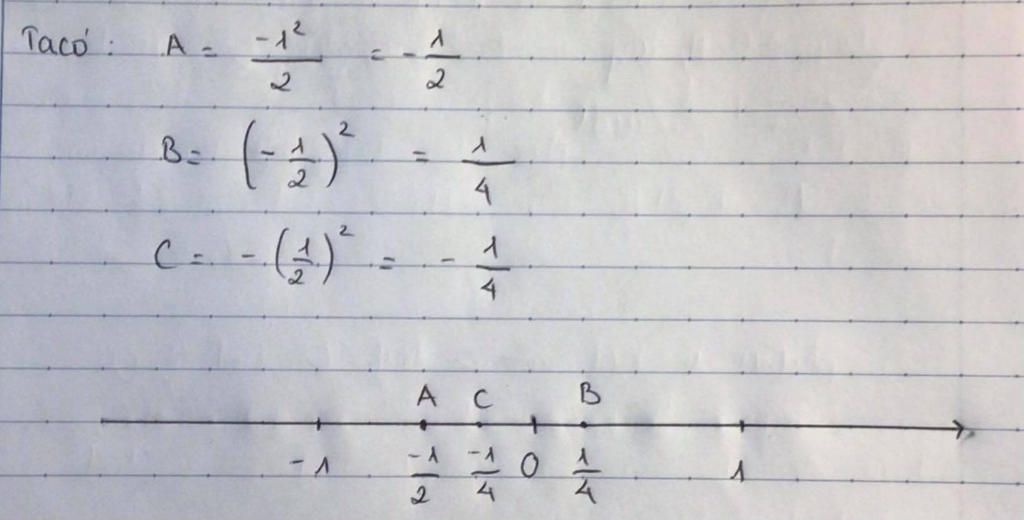 Tacó: A = \frac{-1^2}{2} = -\frac{1}{2}
B = \left(-\frac{1}{2}\right)^2 = \frac{1}{4}
C = -\left(\frac{1}{2}\right)^2 = -\frac{1}{4}
A C B
-1 \frac{-1}{2} \frac{-1}{4} 0 \frac{1}{4} 1